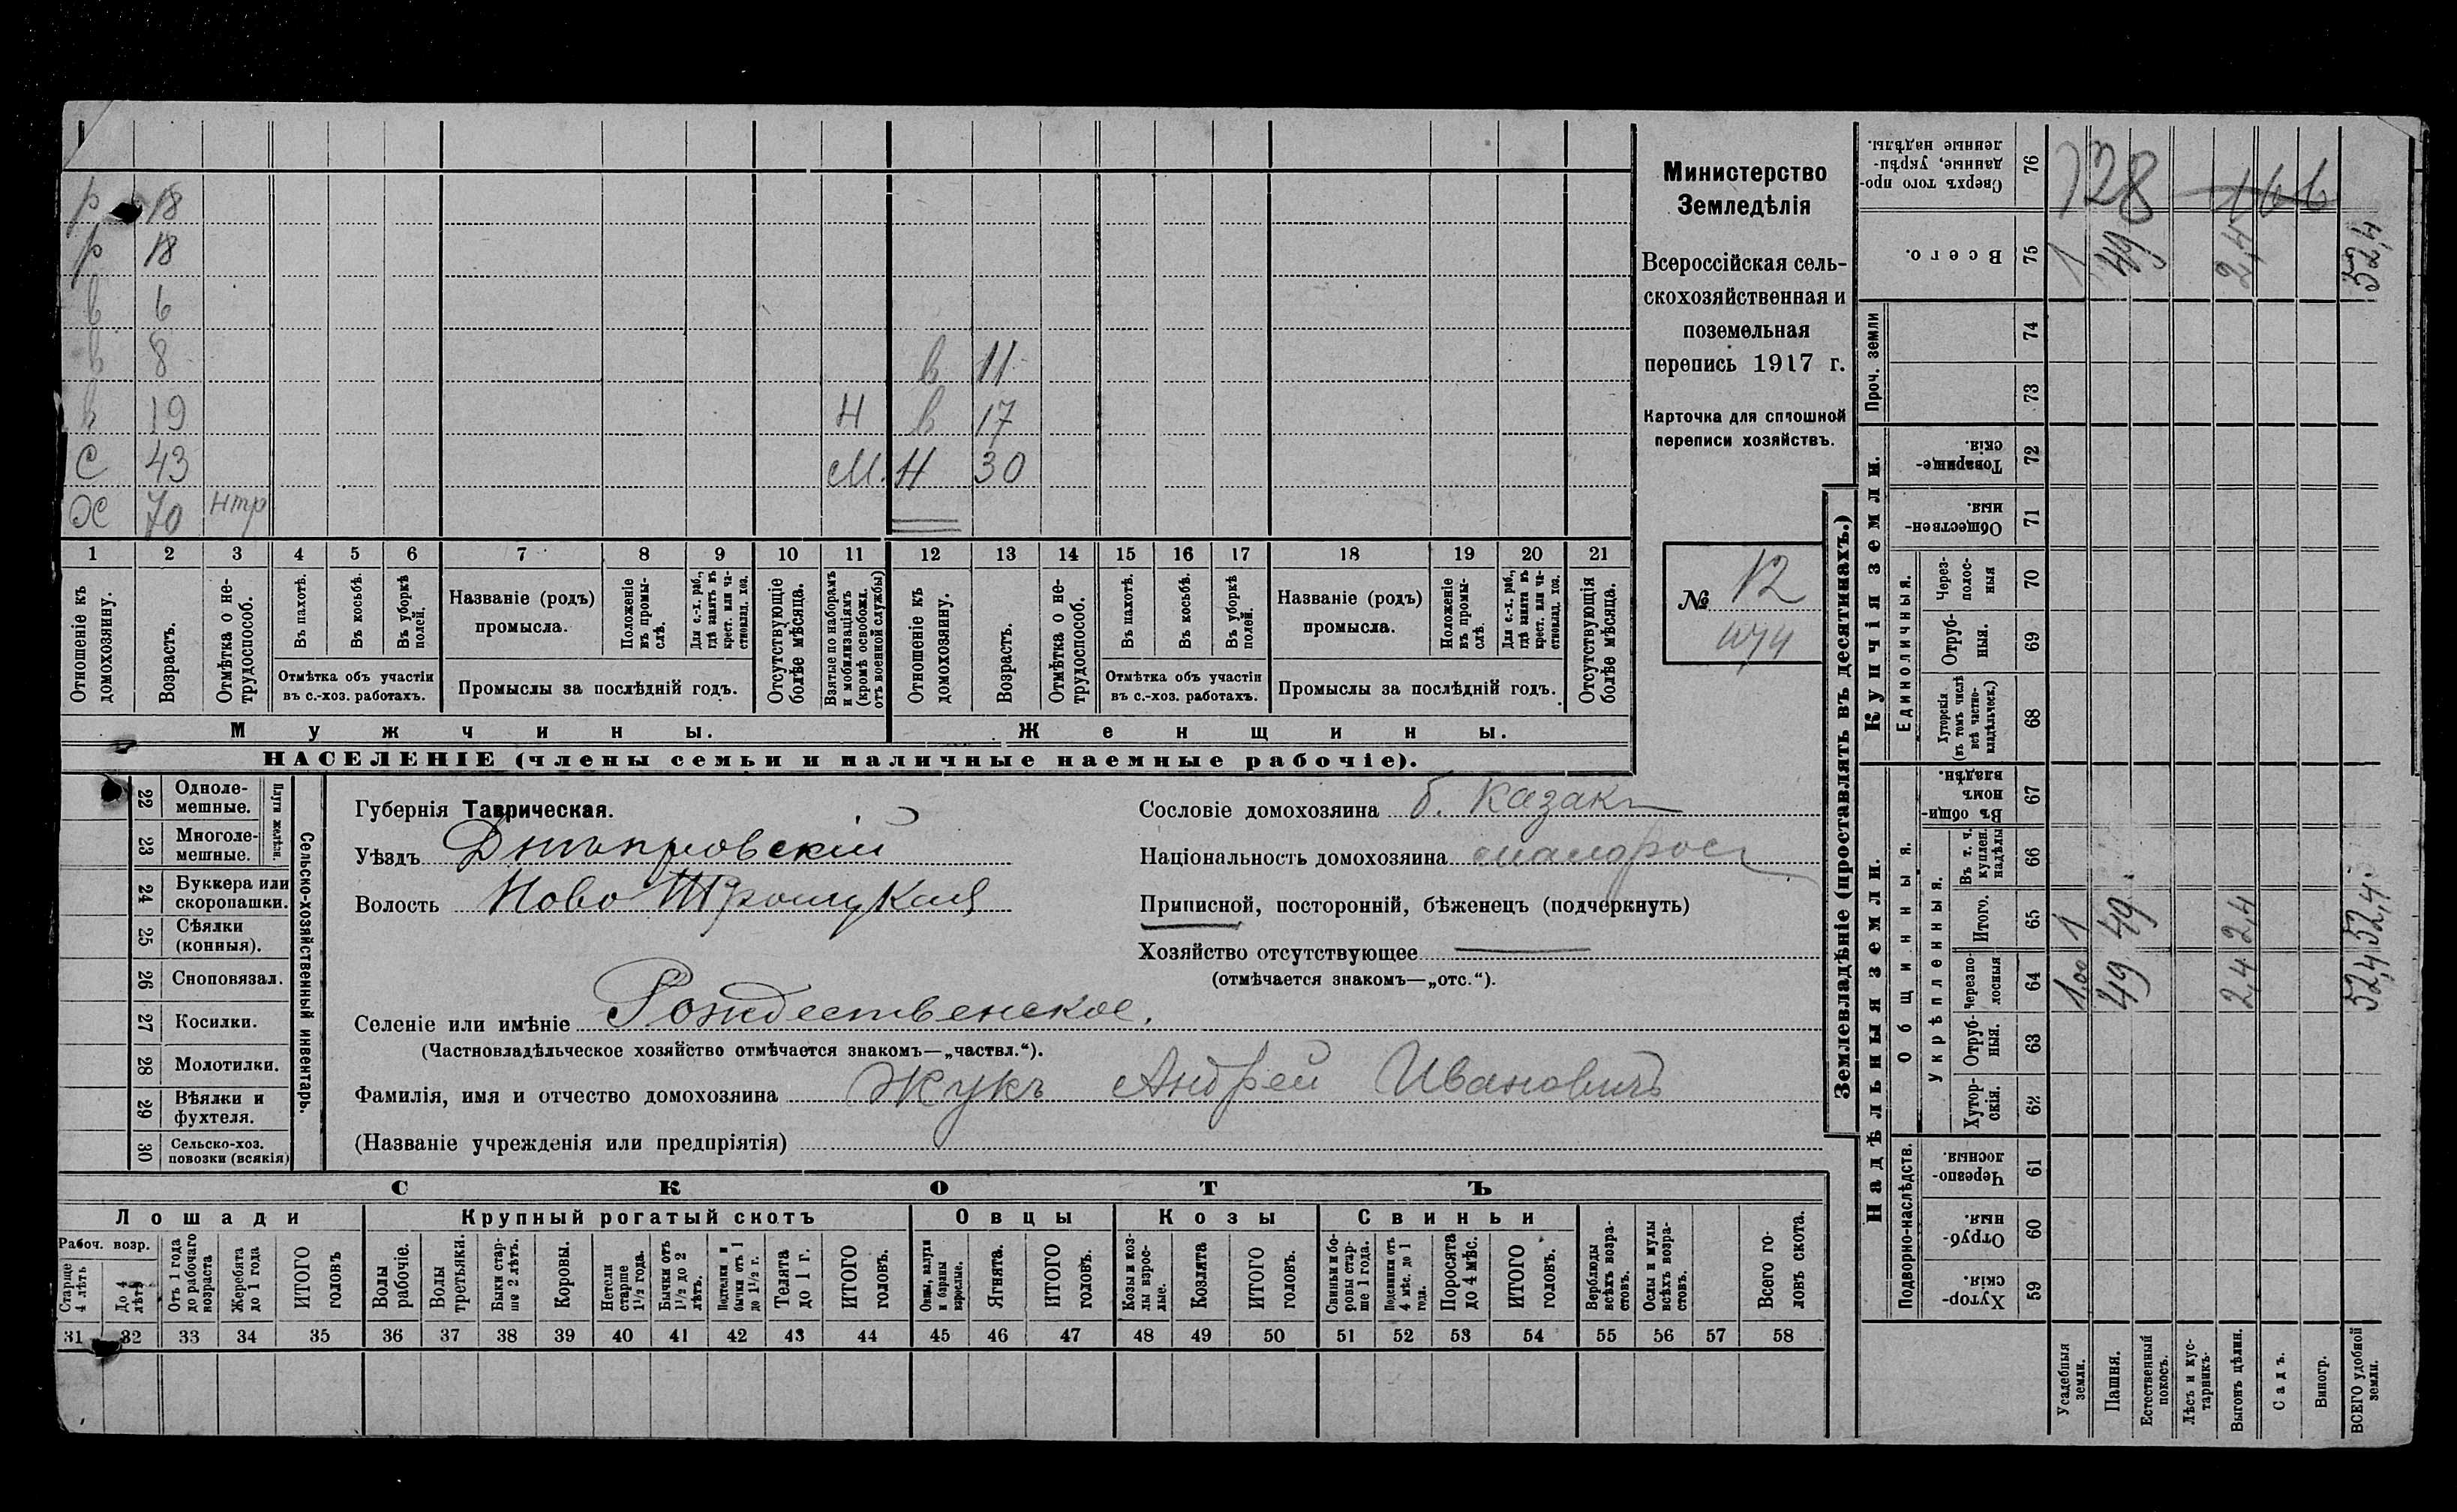 р 18
р 18
в 6
в 8 в 11
в 19 Н в 17
С 43 М. Н 30
Х 70 Нтр
1 2 3 4 5 6 7 8 9 10 11 12 13 14 15 16 17 18 19 20 21
Отношеніе къ домохозяину.
Возрастъ.
Отмѣтка о не-
трудоспособ.
Въ пахотѣ.
Въ косьбѣ.
Въ уборкѣ полей.
Отмѣтка объ участіи
въ с.-хоз. работахъ.
Названіе (родъ)
промысла.
Положеніе въ промы-
слѣ.
Для с.-х. раб., гдѣ занятъ въ крест. или ча-
стновлад. хоз.
Промыслы за послѣдній годъ.
Отсутствующіе болѣе мѣсяца.
Взятые по наборамъ и мобилизаціямъ (кромѣ освобожд. отъ военной службы)
Отношеніе къ домохозяину.
Возрастъ.
Отмѣтка о не-
трудоспособ.
Въ пахотѣ.
Въ косьбѣ.
Въ уборкѣ полей.
Отмѣтка объ участіи
въ с.-хоз. работахъ.
Названіе (родъ)
промысла.
Положеніе въ промы-
слѣ.
Для с.-х. раб., гдѣ занята въ крест. или ча-
стновлад. хоз.
Промыслы за послѣдній годъ.
Отсутствующія болѣе мѣсяца.
Мужчины.
Женщины.
НАСЕЛЕНІЕ (члены семьи и наличные наемные рабочіе).
Министерство
Земледѣлія
Всероссійская сель-
скохозяйственная и
поземельная
перепись 1917 г.
Карточка для сплошной
переписи хозяйствъ.
№ 12
22 Одноле-
мешные.
23 Многоле-
мешные.
Плуги желѣзн.
24 Буккера или
скоропашки.
25 Сѣялки
(конныя).
26 Сноповязал.
27 Косилки.
28 Молотилки.
29 Вѣялки и
фухтеля.
30 Сельско-хоз.
повозки (всякія)
Сельско-хозяйственный инвентарь.
Губернія Таврическая.
Уѣздъ Днѣпровскій
Волость Ново Троицкая
Селеніе или имѣніе Рождественское.
(Частновладѣльческое хозяйство отмѣчается знакомъ—„частвл.“).
Фамилія, имя и отчество домохозяина Жукъ Андрей Ивановичъ
(Названіе учрежденія или предпріятія)
Сословіе домохозяина б. казакъ
Національность домохозяина малорос
Приписной, посторонній, бѣженецъ (подчеркнуть)
Хозяйство отсутствующее —
(отмѣчается знакомъ—„отс.“).
СКОТЪ
Лошади
Крупный рогатый скотъ
Овцы
Козы
Свиньи
Рабоч. возр.
Старше 4 лѣтъ
До 4 лѣтъ
Отъ 1 года до рабочаго возраста
Жеребята до 1 года
ИТОГО головъ
Волы рабочіе.
Волы третьяки.
Быки стар-
ше 2 лѣтъ.
Коровы.
Нетели старше 1½ года.
Бычки отъ 1½ до 2 лѣтъ.
Подтелки и бычки отъ 1 до 1½ г.
Телята до 1 г.
ИТОГО головъ.
Овцы, валухи и бараны взрослые.
Ягнята.
ИТОГО головъ.
Козы и коз-
лы взрос-
лые.
Козлята
ИТОГО головъ.
Свиньи и бо-
ровы стар-
ше 1 года.
Подсвинки отъ 4 мѣс. до 1 года.
Поросята до 4 мѣс.
ИТОГО головъ.
Верблюды всѣхъ возра-
стовъ.
Ослы и мулы всѣхъ возра-
стовъ.
Всего го-
ловъ скота.
31 32 33 34 35 36 37 38 39 40 41 42 43 44 45 46 47 48 49 50 51 52 53 54 55 56 57 58
Землевладѣніе (проставлять въ десятинахъ.)
Надѣльныя земли.
Купчія земли.
Проч. земли
Подворно-наслѣдств.
Общинныя.
Укрѣпленныя.
Единоличныя.
Хутор-
скія. 59
Отруб-
ныя. 60
Черезпо-
лосныя. 61
Хутор-
скія. 62
Отруб-
ныя. 63
Черезпо-
лосныя 64
Итого. 65
Въ т. ч. куплен. надѣлы 66
Въ общи-
номъ владѣн. 67
Хуторскія (въ томъ числѣ всѣ частно-
владѣльческ.) 68
Отруб-
ныя. 69
Через-
полос-
ныя 70
Обществен-
ныя. 71
Товарище-
скія. 72
73
74
Всего. 75
Сверхъ того про-
данные, укрѣп-
ленные надѣлы. 76
Усадебныя земли.
Пашня.
Естественный покосъ.
Лѣсъ и кус-
тарникъ.
Выгонъ цѣлин.
Садъ.
Виногр.
ВСЕГО удобной земли.
1,00 49 2,4 52,4
1 49 2,4 52,4
1 49 2,4 52,4
128 166